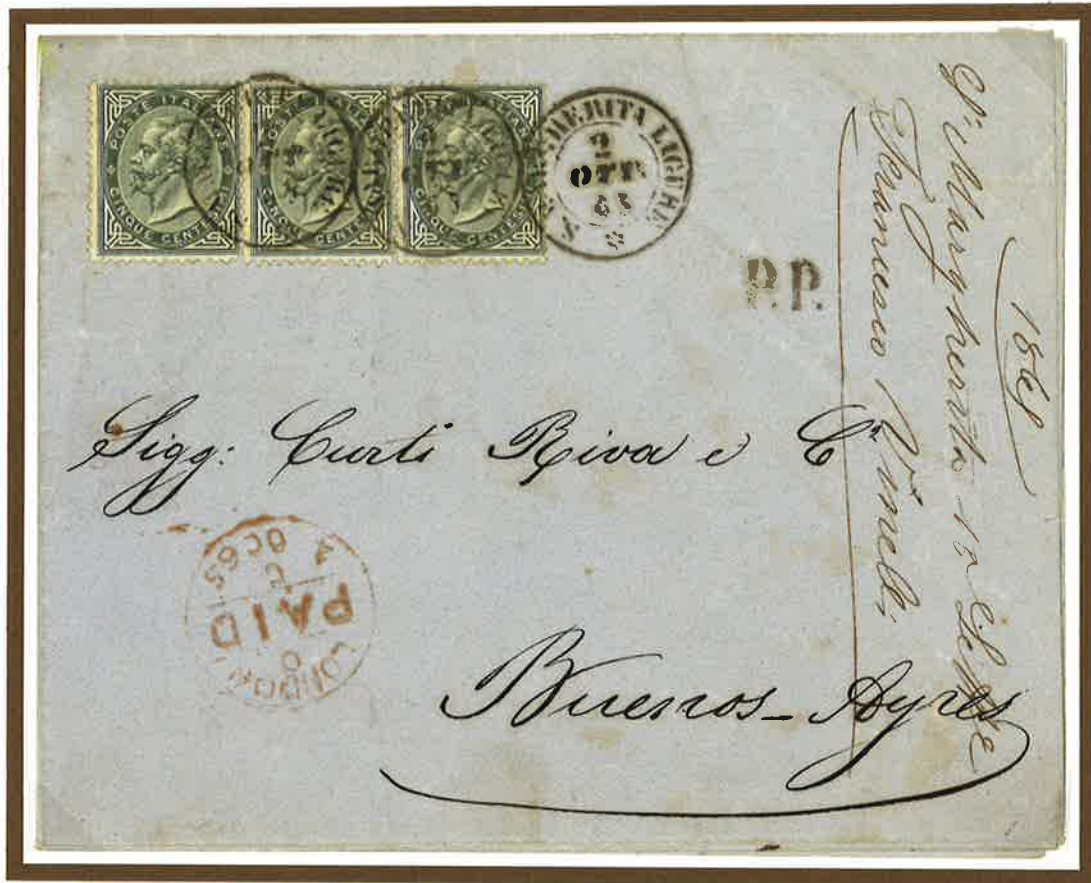 POSTE ITALIANE
CINQUE CENTESIMI
POSTE ITALIANE
CINQUE CENTESIMI
POSTE ITALIANE
CINQUE CENTESIMI
S. MARGHERITA LIGURE
2
OTT
65
P.P.
Sigg: Curti Riva e C.
Buenos-Ayres
LONDON
PAID
4 OC 65
1865
Sa Margherita
Francesco Vinelli